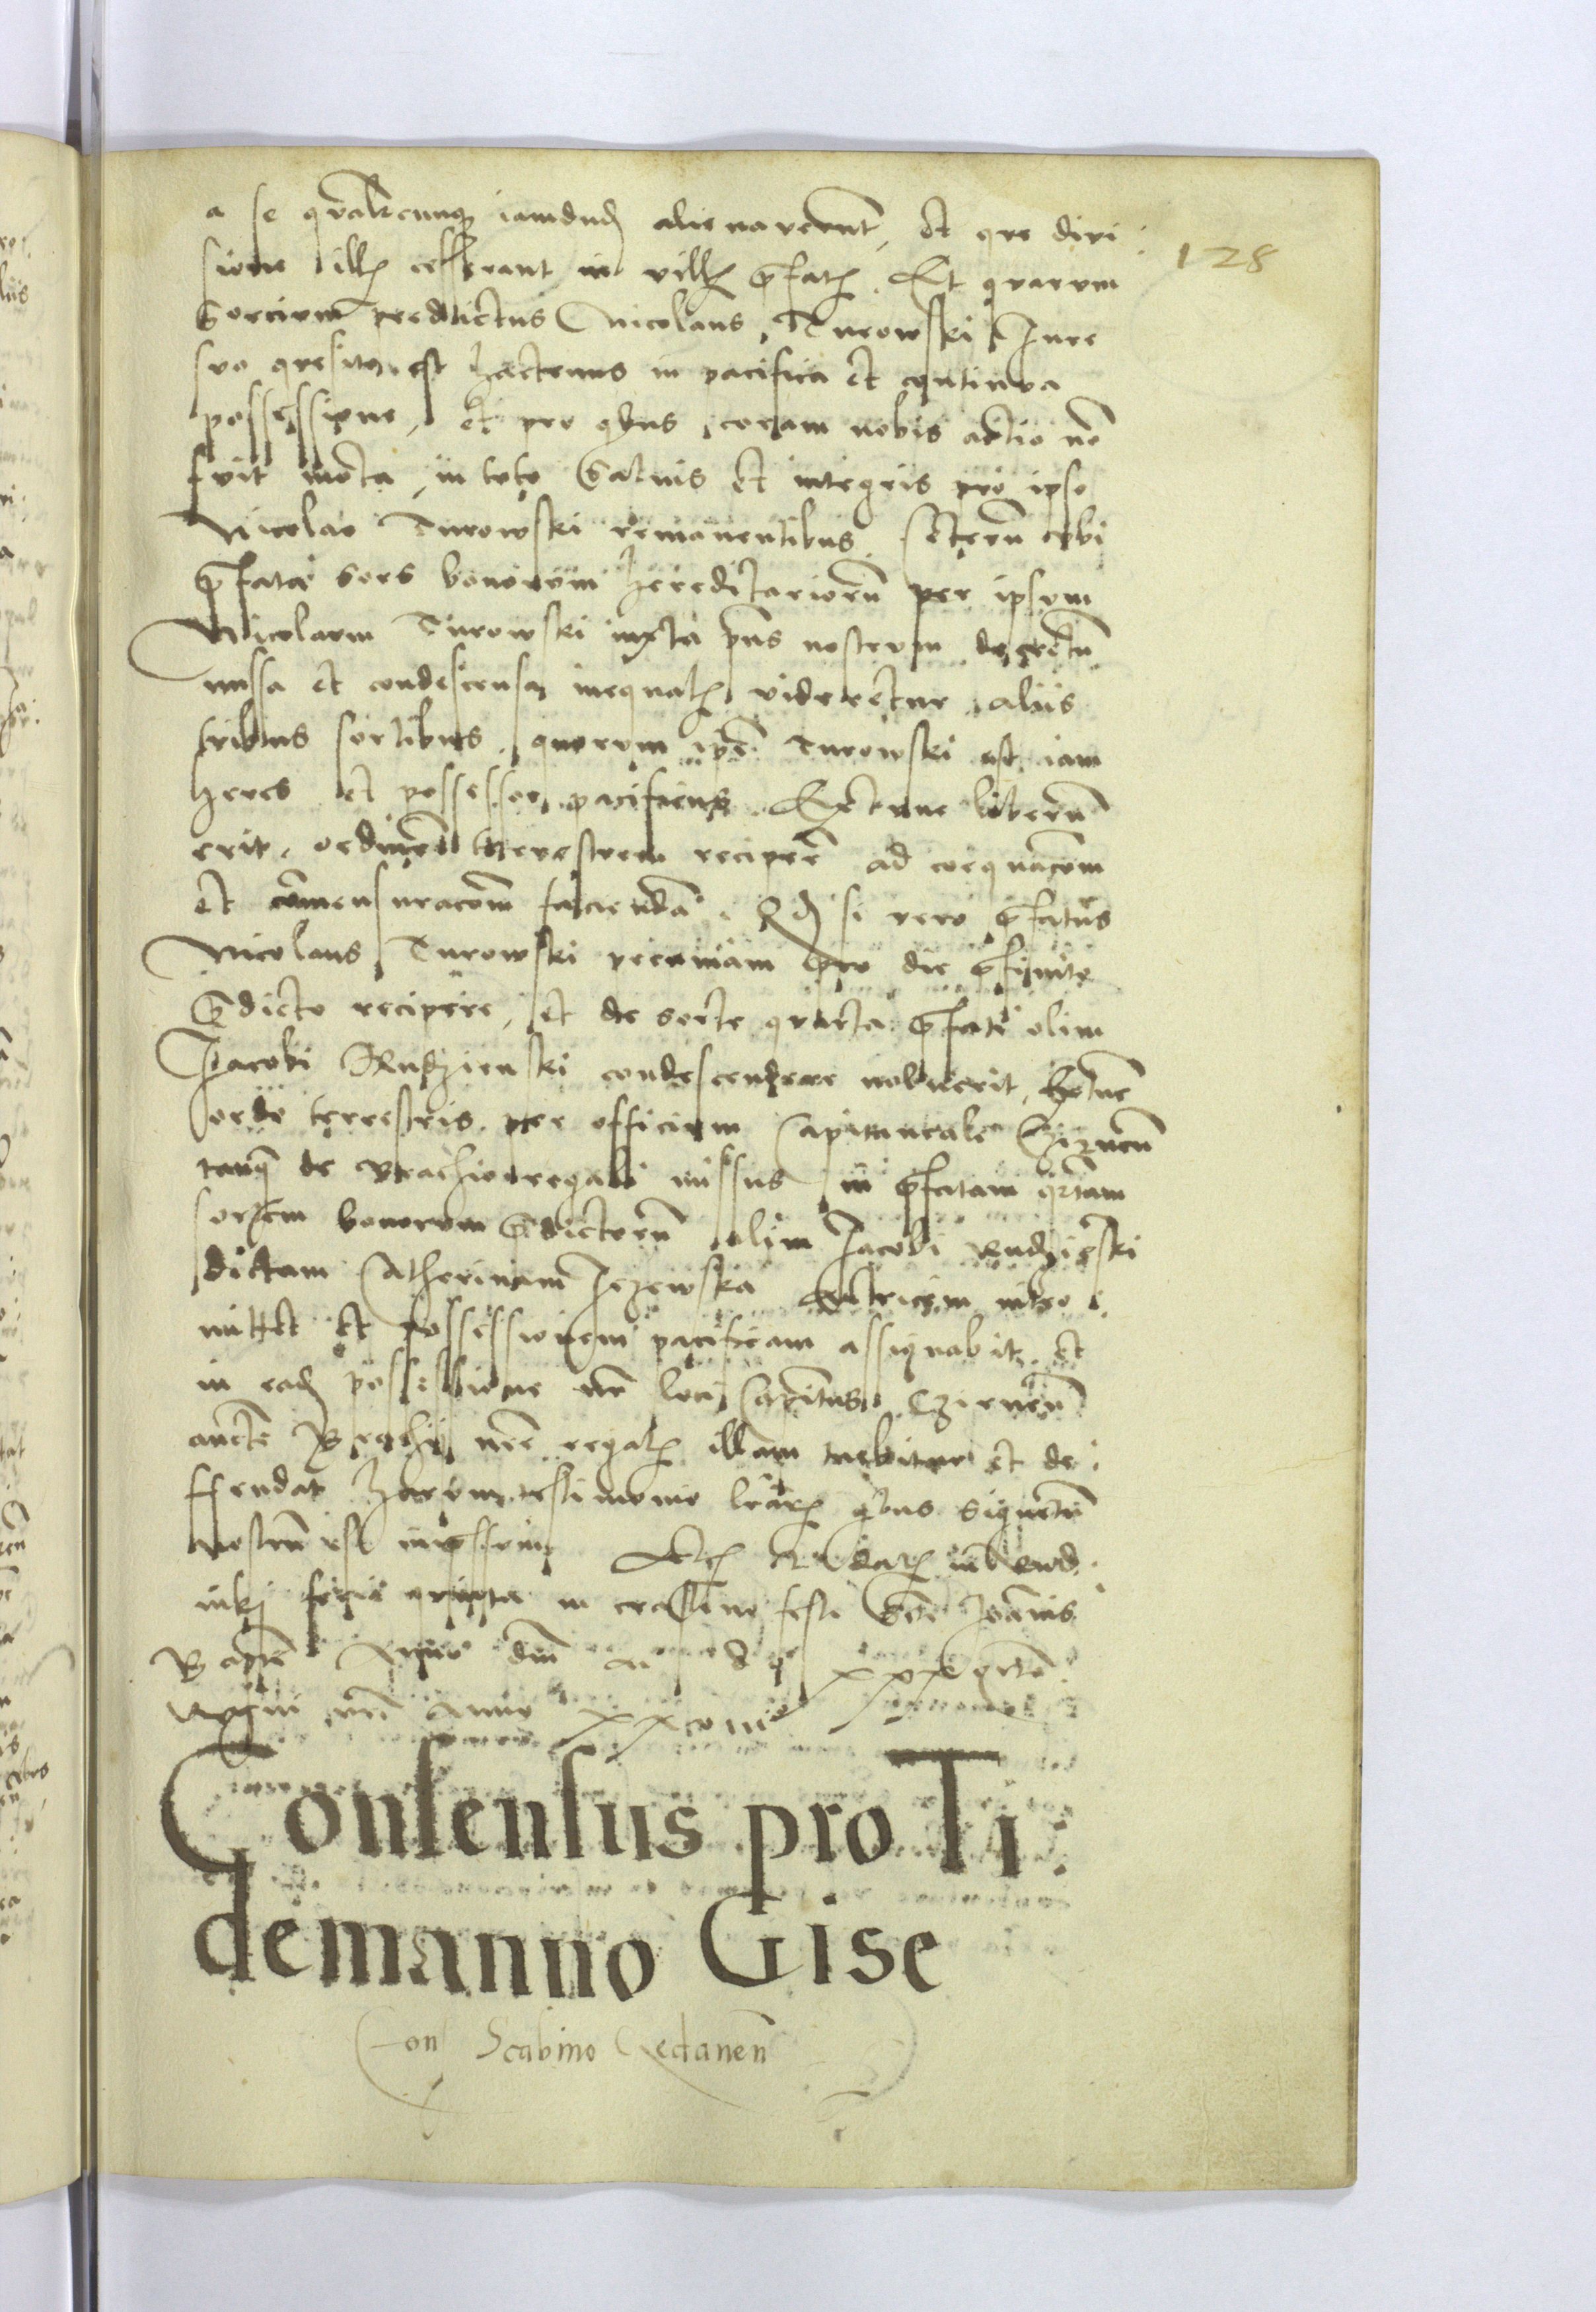 a se qualitercunq iamdud alienaverunt, Et que divi
128
sione ill cesserant in vill pfat. Et quarum
Sorcium predictus Nicolaus Turowski Jure
suo quesito est hactenus in pacifica et continua
possessione, et pro qbus coram nobis actio no
fuit mota, in toto Salvis et integris pro ipso
Nicolao Turowski remanentibus. Ceteru ubi
pfata sors bonorum hereditarioru per ipsum
Nicolaum Turowski iuxta pns nostrum decretu
missa et condescensa inequal videretur aliis
tribus sortibus, quorum ipse Turowski est iam
heres et possessor pacificus. Extunc liberu
erit, ordinem terrestrem recipere ad coequacom
et comensuracom faciendā. Qd si vero pfatus
Nicolaus Turowski pecuniam pro die pfinito
pdicto recipere, et de sorte quarta pfati olim
Jacobi Rudzienski condescendere noluerit, Extunc
ordo terrestris per officium Capitaneale Czirnen
tanq de brachio regali missus in pfatam qrtam
sortem bonorum pdictoru olim Jacobi Rudzieski
dictam Catherinam Jezewska actricem intro
mittet et possessionem pacificam assignabit et
in ead possessione nre loci Capitaneus Czirnen
aucte Brachy nre regal illam tuebitur et de
ffendat Harum testimonio lrar qbus sigillum
nostru est impssum
feria quinta in crastino festi Sti Joannis
Bapte Anno dni M d XXX
Regni nri Anno XX
Consensus pro Ti
demanno Gise
Con Scabino Gedanen